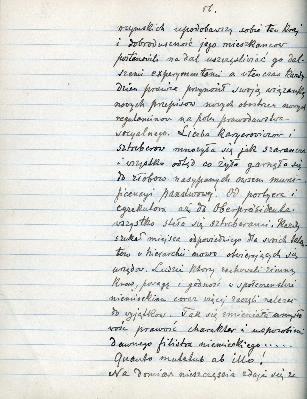 56.
rzymskich upodobawszy sobie ten kraj
i dobroduszność jego mieszkańców
postanowili nadal uszczęśliwiać go dal-
szemi experymentami a wtenczas każdy
dzień prawie przynosił swoją wiązankę
nowych przepisów nowych obostrzeń nowych
regulaminów na polu prawodawstwa
socyalnego. Liczba karyerowiczów i
sztreberów mnożyła się jak szarańcza
i wszystko odtąd co żyło garnęło się
do żłobów nasypanych owsem muni-
ficencyi państwowej. Od portyera i
egzekutora aż do Oberprezidenta
wszystko stało się sztreberami. Każdy
szukał miejsca odpowiedniego dla swoich
tów w hierarchii nowo otwierających się
urzędów. Ludzi którzy zachowali zimną
krew, powagę i godność w społeczeństwie
niemieckiem coraz więcej zaczęli należeć
do wyjątków. Tak się zmieniała umysło-
wość prawość charakter i usposobienie
dawnego filistra niemieckiego.....
Quanto mutatub ab illo!
Na domiar nieszczęścia zdaje się że